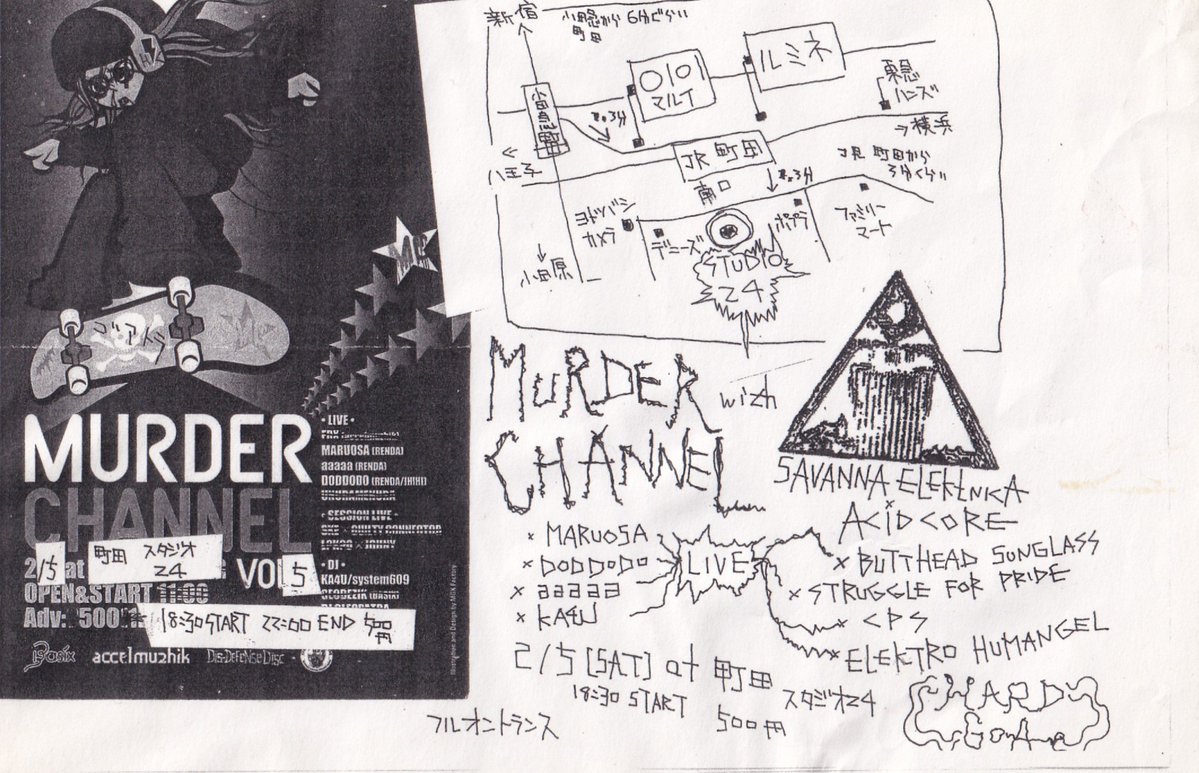 MURDER
CHANNEL
2/5
町田 スタジオ
24
VOL 5
OPEN&START
Adv: 500
18:30 START 22:00 END 500円
accelmuzhik
DIS-DEFENSE DISC
Illustration and Design by MGK Factory
・LIVE・
MARUOSA (RENDA)
aaaaa (RENDA)
DODDODO (RENDA/JHIHI)
・SESSION LIVE・
・DJ・
KA4U/system609
新宿
小田急から 6分ぐらい
町田
OIOI
マルイ
ルミネ
東急
ハンズ
→横浜
小田急町田
八王子
JR 町田
南口
JR 町田から
3分くらい
ヨドバシ
カメラ
デニーズ
ポプラ
ファミリー
マート
小田原
STUDIO
24
MURDER
CHANNEL
with
SAVANNA ELEKTNICA
×
ACIDCORE
LIVE
× MARUOSA
× DODDODO
× aaaaa
× KA4U
× BUTTHEAD SUNGLASS
× STRUGGLE FOR PRIDE
× CPS
× ELEKTRO HUMANGEL
2/5 [SAT] at 町田 スタジオ24
18:30 START 500円
フルオントランス